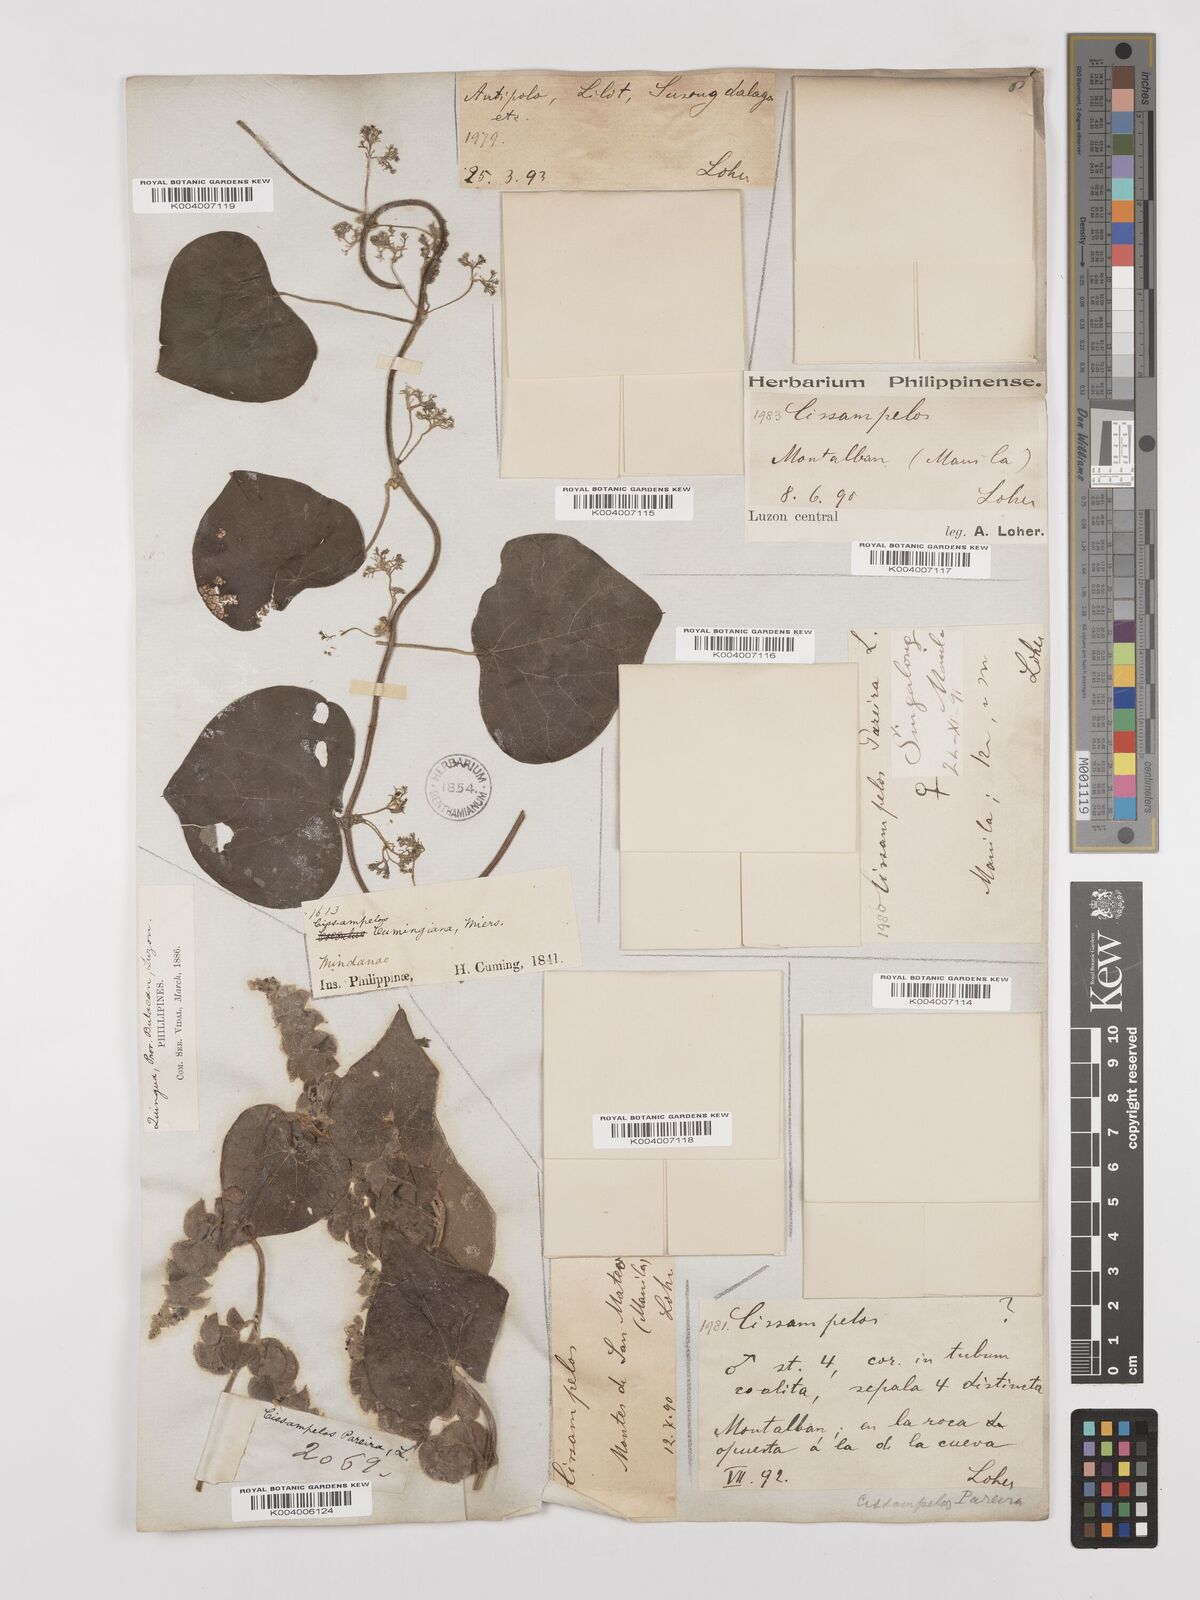 Antipolo, Lilit, Susong dalaga
etc.
1979.
25. 3. 93 Loher
ROYAL BOTANIC GARDENS KEW
K004007119
ROYAL BOTANIC GARDENS KEW
K004007115
Herbarium Philippinense.
1983 Cissampelos
Montalban (Manila)
8. 6. 90 Loher
Luzon central
leg. A. Loher.
ROYAL BOTANIC GARDENS KEW
K004007117
ROYAL BOTANIC GARDENS KEW
K004007116
1980 Cissampelos Pareira L.
♀ Singalong
Manila
Manila;
Loher
HERBARIUM
1854.
BENTHAMIANUM
1613
Cissampelos
Cumingiana, Miers.
Mindanao
Ins. Philippinæ, H. Cuming, 1841.
Quingua, Prov. Bulacan, Luzon.
PHILLIPINES.
COM. SEB. VIDAL, March, 1886.
ROYAL BOTANIC GARDENS KEW
K004007114
ROYAL BOTANIC GARDENS KEW
K004007118
Cissampelos
Montes de San Mateo
(Manila)
12. X. 90 Loher
1981. Cissampelos ?
♂ st. 4, cor. in tubum
coalita, sepala 4 distincta
Montalban; en la roca
opuesta á la d. la cueva
VII. 92. Loher
Cissampelos Pareira
Cissampelos Pareira, L.
2069
ROYAL BOTANIC GARDENS KEW
K004006124
inches
centimetres
Density
Don Williams
M001119
Kew
Royal Botanic Gardens
copyright reserved
0 1 2 3 4 5 6 7 8 9 10
cm